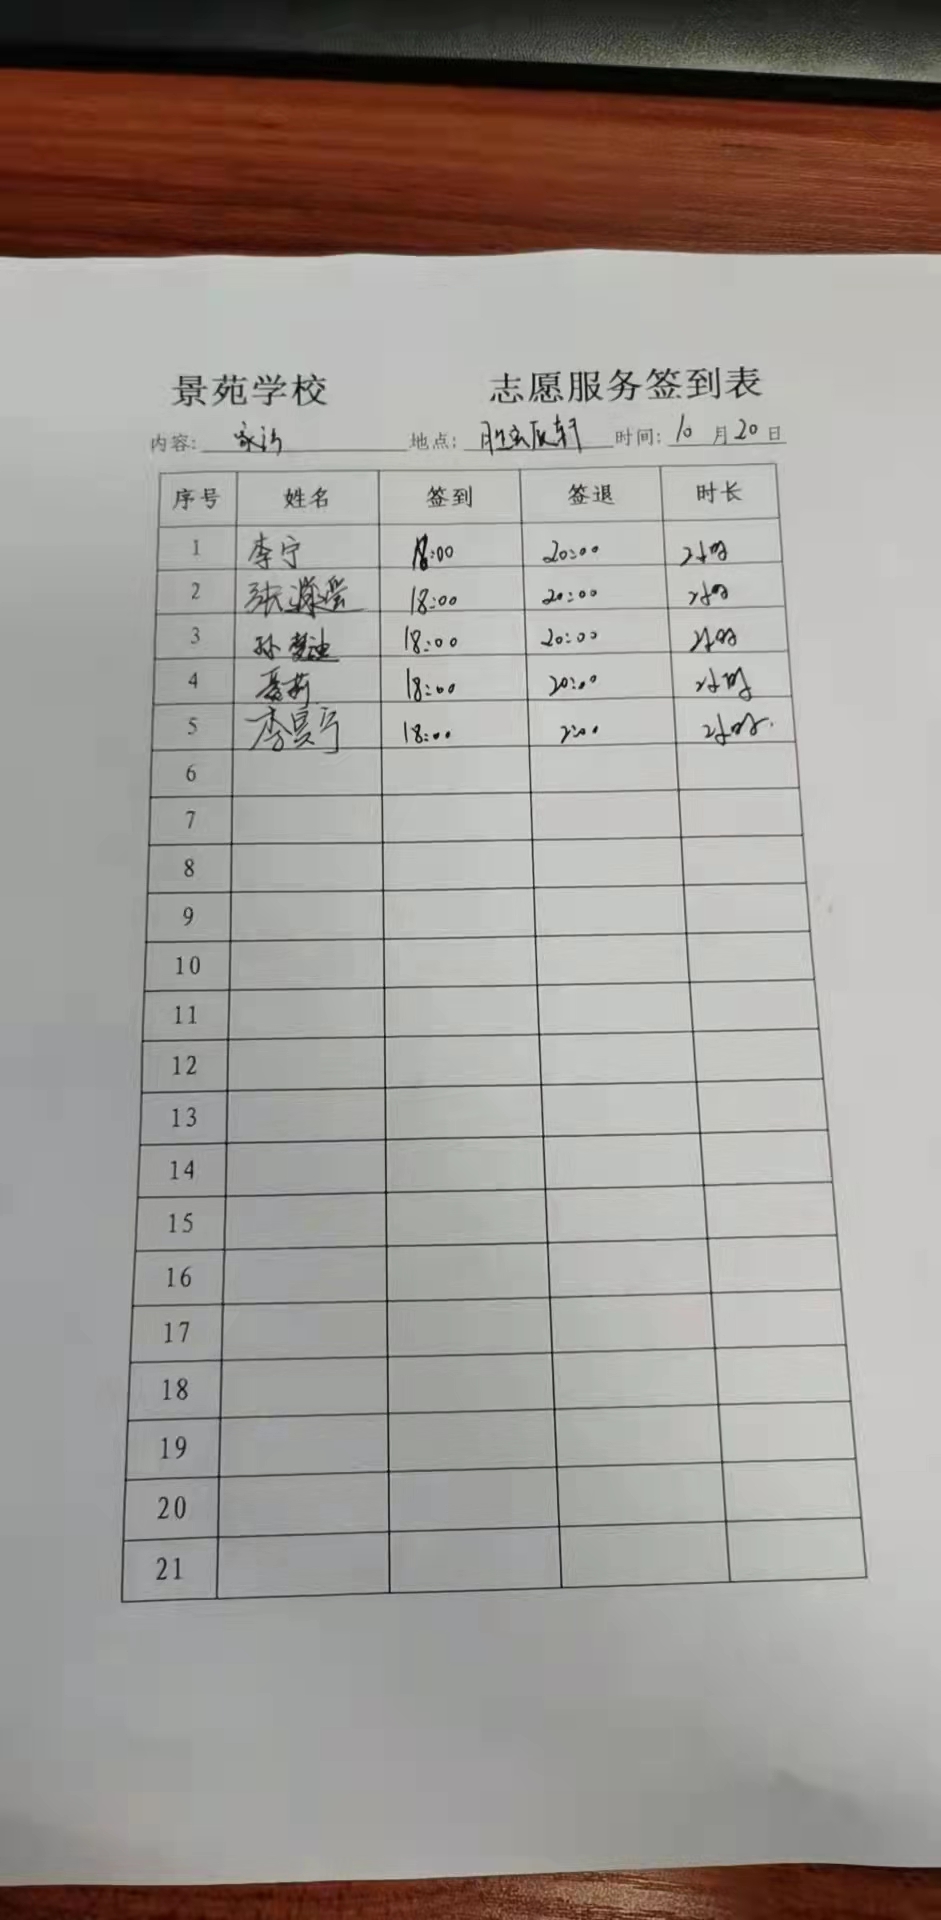 景苑学校 志愿服务签到表
内容: 家访 地点: 时间: 10月20日
序号 姓名 签到 签退 时长
1 李宁 18:00 20:00 2小时
2 张 18:00 20:00 2小时
3 孙楚迪 18:00 20:00 2小时
4 聂莉 18:00 20:00 2小时
5 李昊宁 18:00 2:00 2小时.
6
7
8
9
10
11
12
13
14
15
16
17
18
19
20
21